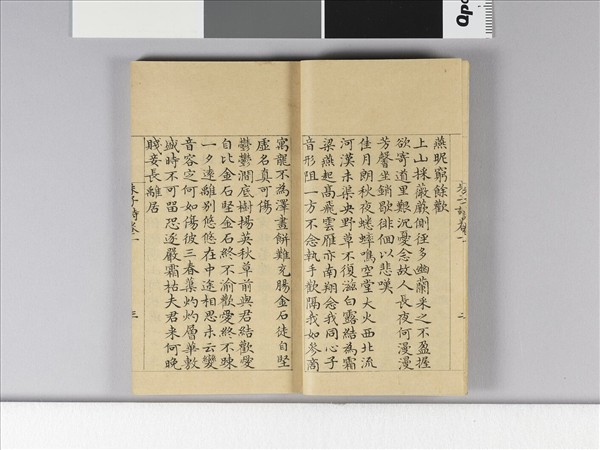 燕昵窮餘歡
上山採薇蕨側徑多幽蘭采之不盈握
欲寄道里艱沉憂念故人長夜何漫漫
芳馨坐銷歇徘徊以悲嘆
佳月朗秋夜蟋蟀鳴空堂大火西北流
河漢未渠央野草不復滋白露結為霜
梁燕起高飛雲雁亦南翔念我同心子
音形阻一方不念執手歡隔我如參商
寓龍不為澤畫餅難充腸金石徒自堅
虛名真可傷
鬱鬱澗底樹揚英秋草前與君結歡愛
自比金石堅金石終不渝歡愛終不踈
一夕遠離別悠悠在中途相思未云變
音容之何如傷彼三春蕖灼灼層華敷
盛時不可留恐逐嚴霜枯夫君来何晚
賤妾長離居
朱子詩卷一
三